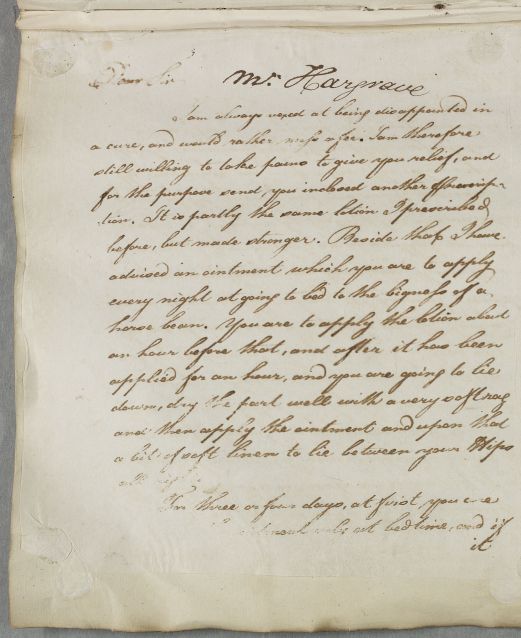 Dear Sir Mr. Hargrave
I am always vexed at being disappointed in
a cure, and would rather miss a fee. I am therefore
still willing to take pains to give you relief, and
for the purpose send, you inclosed another Prescrip-
tion. It is partly the same lotion I prescribed
before, but made stronger. Beside that I have
advised an ointment which you are to apply
every night at going to bed to the bigness of a
horse bean. You are to apply the lotion about
an hour before that, and after it has been
applied for an hour, and you are going to lie
down, dry the part well with a very soft rag
and then apply the ointment and upon that
a bit of soft linen to lie between your Hips
all
For three or four days, at first, you are
at bedtime, and if
it